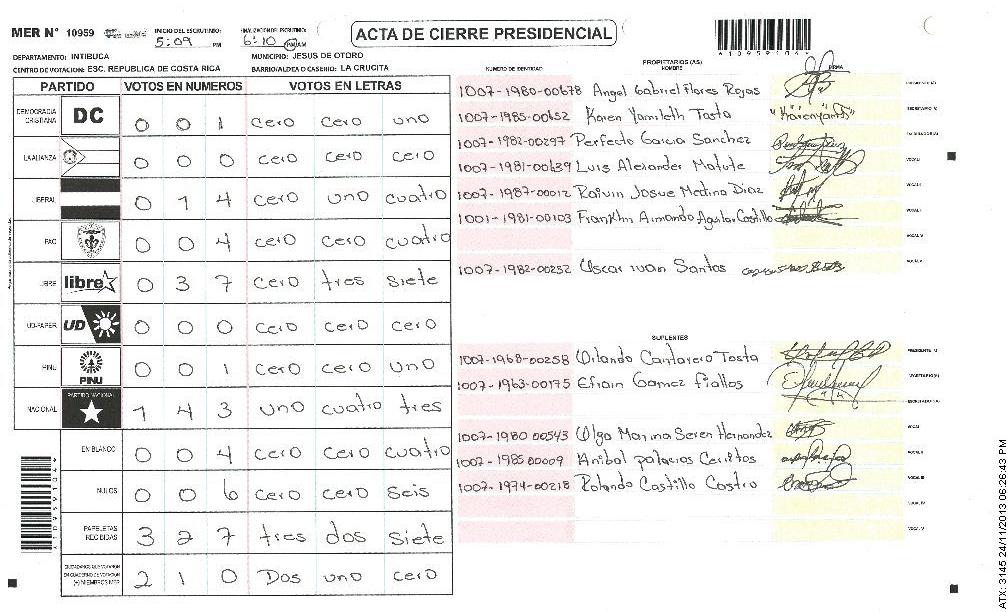 MER N° 10959
INICIO DEL ESCRUTINIO: 5:09 PM
FINALIZACION DEL ESCRUTINIO: 6:10 PM/AM
ACTA DE CIERRE PRESIDENCIAL
DEPARTAMENTO: INTIBUCA
MUNICIPIO: JESUS DE OTORO
CENTRO DE VOTACION: ESC. REPUBLICA DE COSTA RICA
BARRIO/ALDEA O CASERIO: LA CRUCITA
PARTIDO VOTOS EN NUMEROS VOTOS EN LETRAS
DEMOCRACIA CRISTIANA DC 0 0 1 cero cero uno
LA ALIANZA 0 0 0 cero cero cero
LIBERAL 0 1 4 cero uno cuatro
PAC 0 0 4 cero cero cuatro
LIBRE libre 0 3 7 cero tres siete
UD-FAPER UD 0 0 0 cero cero cero
PINU PINU 0 0 1 cero cero uno
NACIONAL PARTIDO NACIONAL 1 4 3 uno cuatro tres
EN BLANCO 0 0 4 cero cero cuatro
NULOS 0 0 6 cero cero seis
PAPELETAS RECIBIDAS 3 2 7 tres dos siete
CIUDADANOS QUE VOTARON EN CUADERNO DE VOTACION (+) MIEMBROS MER 2 1 0 Dos uno cero
PROPIETARIOS (AS)
NUMERO DE IDENTIDAD NOMBRE FIRMA
1007-1980-00678 Angel Gabriel Flores Rojas
1007-1985-00652 Karen Yamileth Tosta
1007-1982-00297 Perfecto Garcia Sanchez
1007-1981-00639 Luis Alexander Matute
1007-1987-00012 Roivin Josue Medina Diaz
1001-1981-00103 Franklin Armando Aguilar Castillo
1007-1982-00252 Oscar ivan Santos
SUPLENTES
1007-1968-00258 Orlando Cantarero Tosta
1007-1963-00175 Efrain Gomez fiallos
1007-1980 00543 Olga Marina Seren Hernandez
1007-1985 00009 Anibal palacios Cerritos
1007-1974-00218 Rolando Castillo Castro
ATX: 3145 24/11/2013 06:26:43 PM